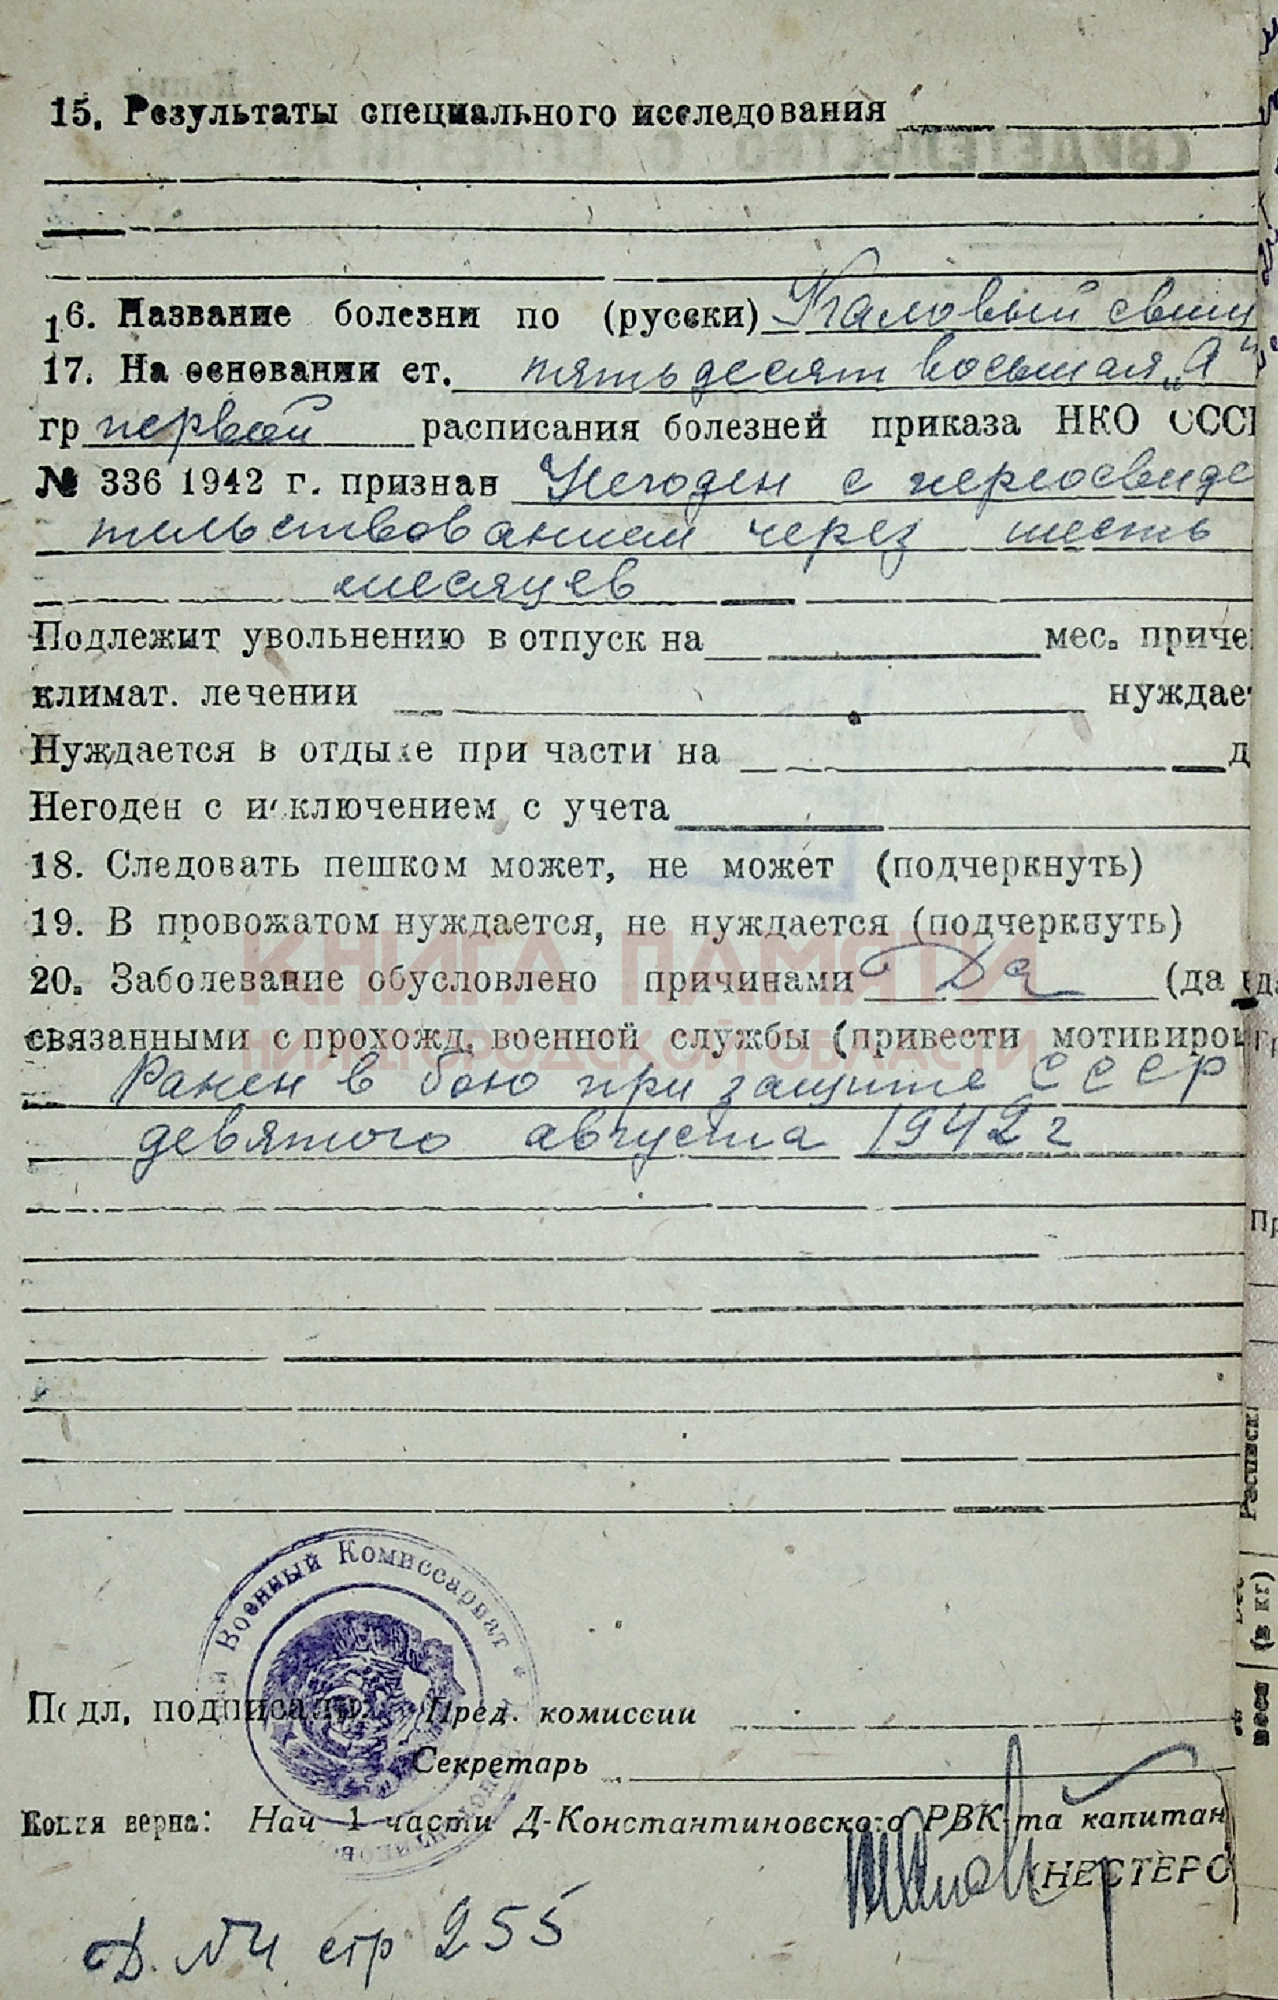 15. Результаты специального исследования
16. Название болезни по (русски) Каловый свищ
17. На основании ст. пятьдесят восьмая „А"
гр первой расписания болезней приказа НКО СССР
№ 336 1942 г. признан Негоден с переосвиде
тельствованием через шесть
месяцев
Подлежит увольнению в отпуск на мес. приче
климат. лечении нуждает
Нуждается в отдыхе при части на д
Негоден с исключением с учета
18. Следовать пешком может, не может (подчеркнуть)
19. В провожатом нуждается, не нуждается (подчеркнуть)
КНИГА ПАМЯТИ
20. Заболевание обусловлено причинами Да (да
связанными с прохожд. военной службы (привести мотивиров
НИЖЕГОРОДСКОЙ ОБЛАСТИ
Ранен в бою при защите СССР
девятого августа 1942 г
Военный Комиссариат
Подл. подписали: Пред. комиссии
Секретарь
Копия верна: Нач 1 части Д-Константиновского РВК-та капитан
(НЕСТЕРО
Д. №4 стр 255
(в кг)